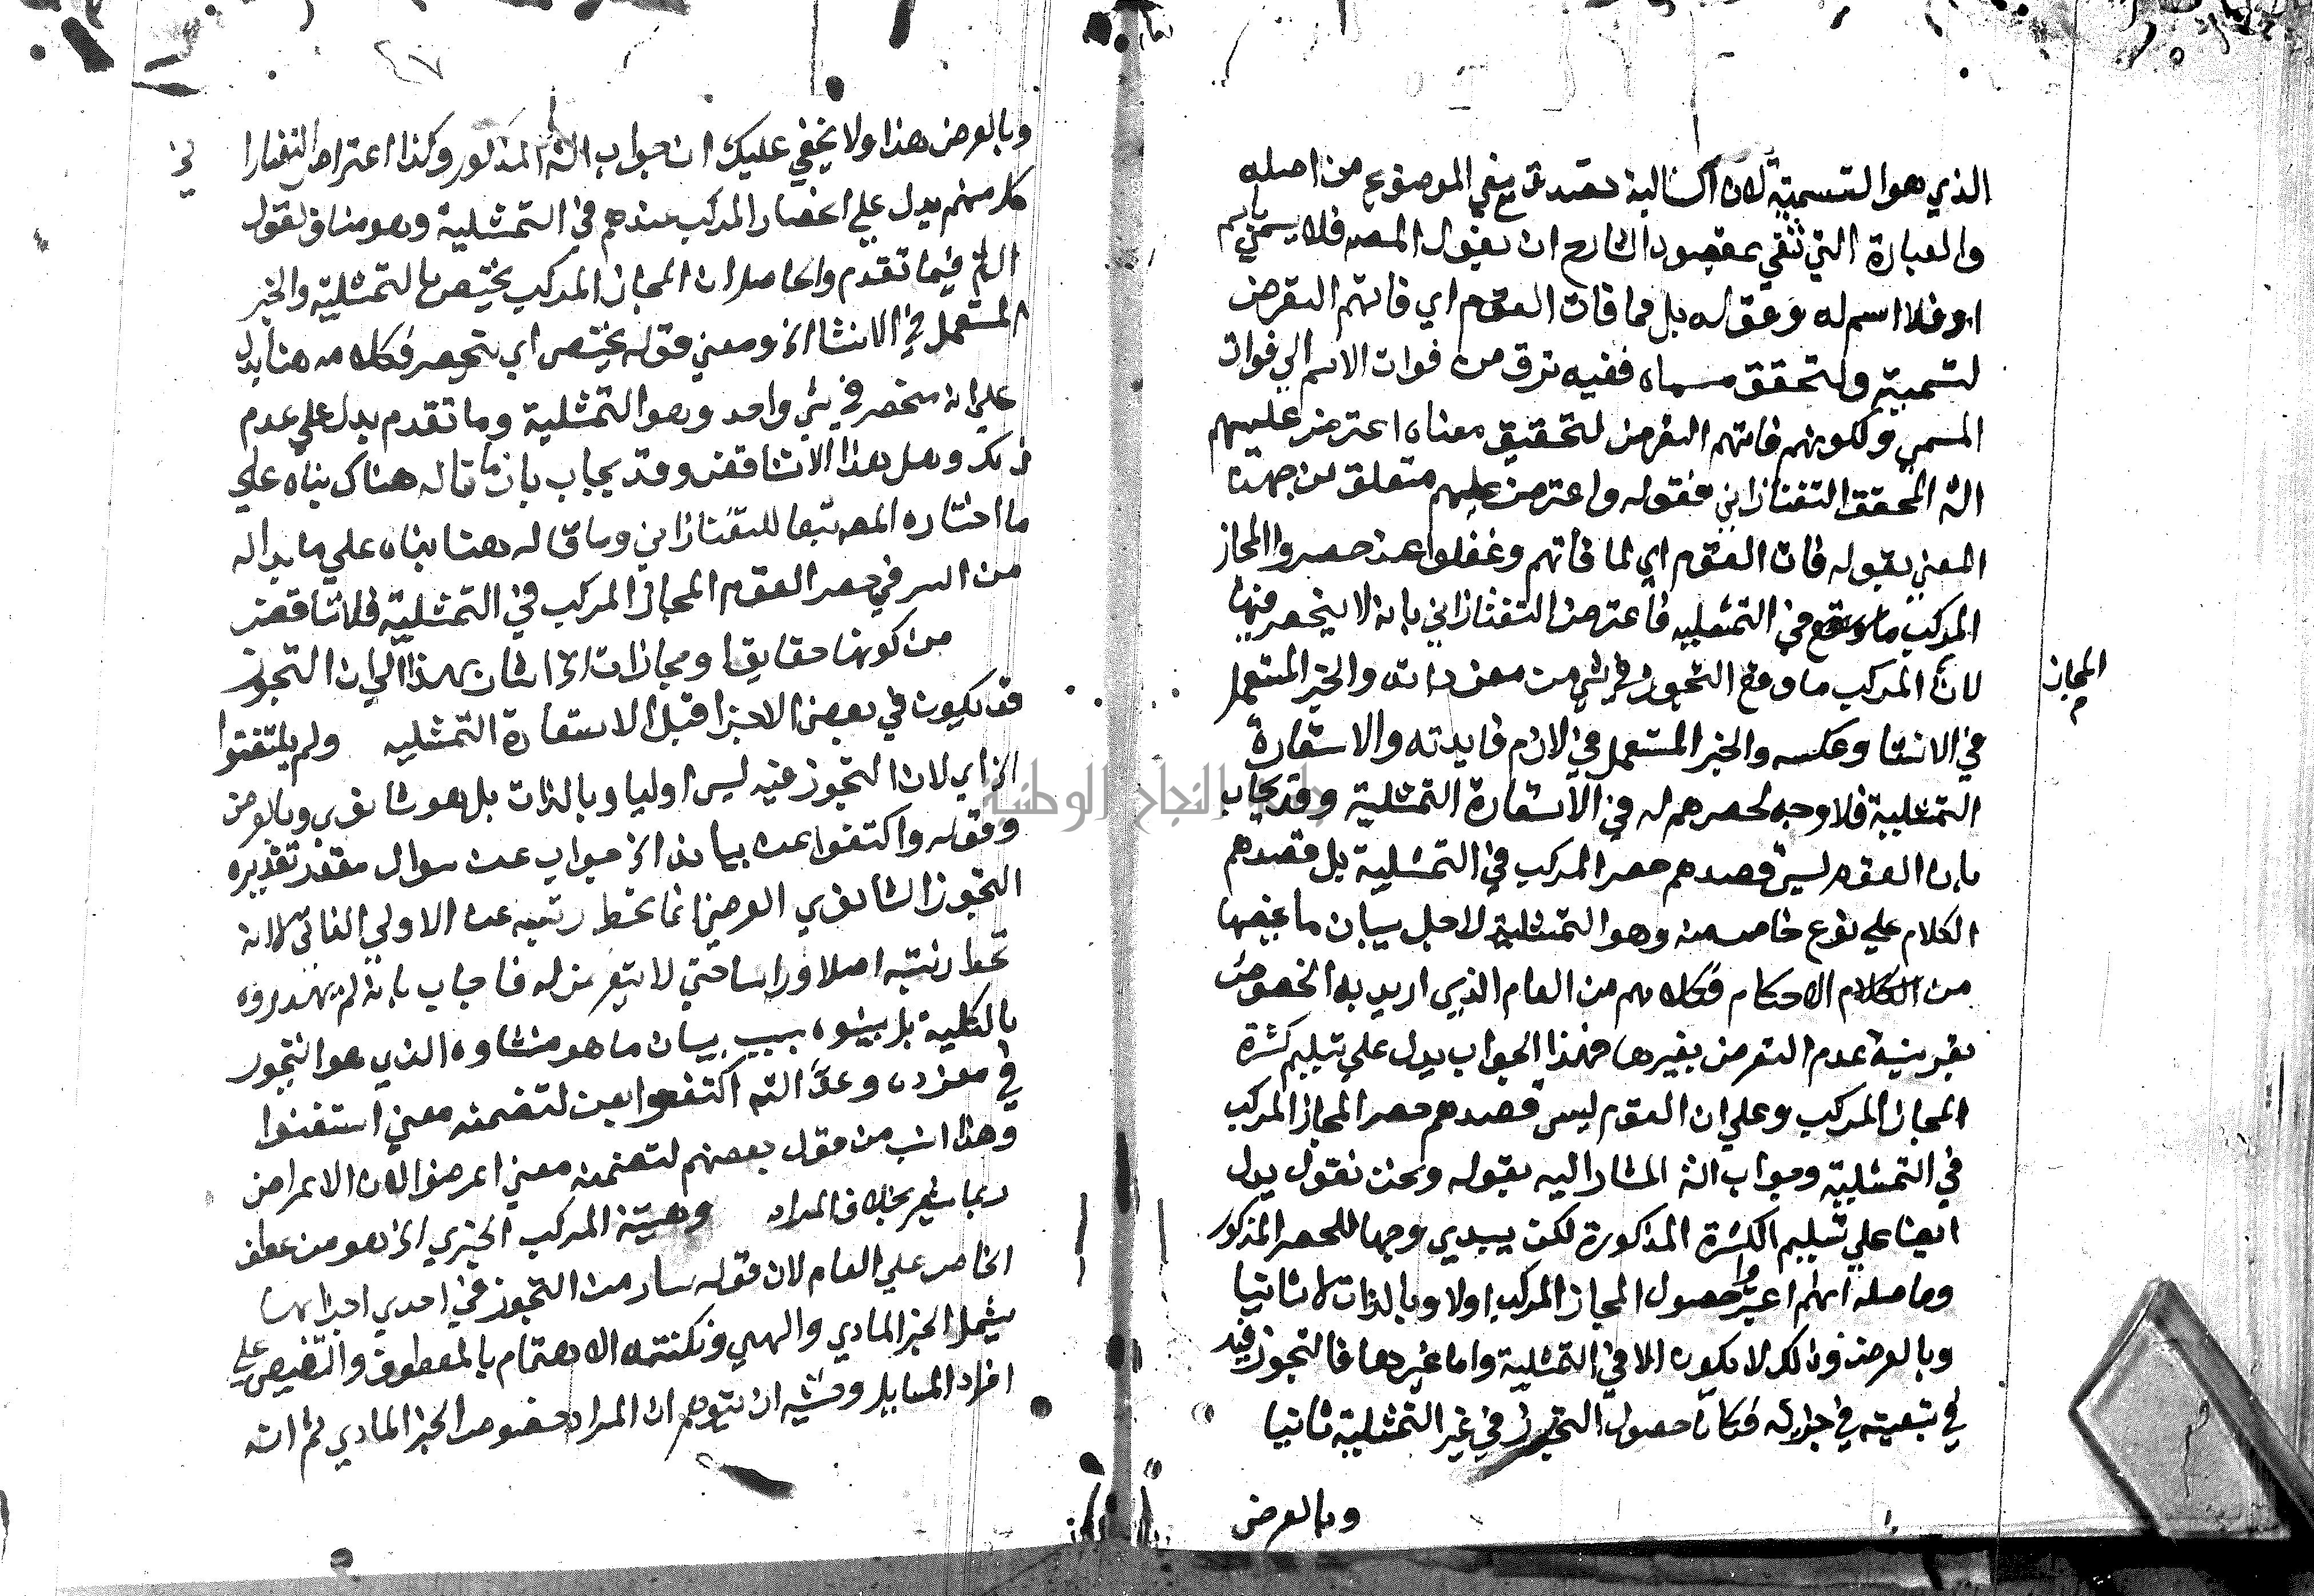 الذي هو التسمية لان السالبة تصدق بنفي الموضوع من اصله
والعبارة التي تفي بمقصود الشارح ان يقول المص فلا يسمى باسم
او فلا اسم له وقوله بل مما فات القوم اي فاتهم التعرض
لتسميته ولتحقق مسماه ففيه ترق من فوات الاسم الي فوات
المسمي ولكونهم فاتهم التعرض لتحقيق معناه اعترض عليهم
الش المحقق التفتازاني فقوله واعترض عليهم متعلق من جهة
المعني بقوله فات القوم اي لما فاتهم وغفلوا عنه حصروا المجاز
المركب في التمثيلية فاعترض التفتازاني بانه لا ينحصر فيها
لان المركب ما وقع التجوز في شي من مفرداته والخبر المستعمل
المجاز
في الانشا وعكسه والخبر المستعمل في لازم فايدته والاستعارة
التمثيلية فلا وجه لحصرهم له في الاستعارة التمثيلية وقد يجاب
بان القوم ليس قصدهم حصر المركب في التمثيلية بل قصدهم
الكلام علي نوع خاص منه وهو التمثيلية لاجل بيان ما يخصها
من الكلام الاحكام فكلامهم من العام الذي اريد به الخصوص
بقرينة عدم التعرض بغيرها فهذا الجواب يدل علي تسليم كثرة
المجاز المركب وعلي ان القوم ليس قصدهم حصر المجاز المركب
في التمثيلية وجواب الش المشار اليه بقوله ونحن نقول يدل
ايضا علي تسليم الكثرة المذكورة لكن يبدي وجها للحصر المذكور
وحاصله انهم اعتبروا حصول المجاز المركب اولا وبالذات لا ثانيا
وبالعرض وذلك لا يكون الا في التمثيلية واما غيرها فالتجوز فيه
في تبعيته في اجزائه فكان حصول التجوز في غير التمثيلية ثانيا
وبالعرض
وبالعرض هذا ولا يخفي عليك ان جواب الش المذكور وكذا اعتراض التفتازا
ني
كل منهم يدل علي انحصار المركب عندهم في التمثيلية وهو مناف لقول
الش فيما تقدم والحاصل ان المجاز المركب يختص بالتمثيلية والخبر
المستعمل في الانشا الخ ومعني قوله يختص اي ينحصر فكلامه هنا يدل
علي انه منحصر في شي واحد وهو التمثيلية وما تقدم يدل علي عدم
ذلك وهل هذا الا تناقض وقد يجاب بان ما قاله هناك بناه علي
ما اختاره المص تبعا للتفتازاني وما قاله هنا بناه علي ما بدا له
من السر في حصر القوم المجاز المركب في التمثيلية فلا تناقض
من كونها حقايقا ومجازات الخ اشار بهذا الي ان التجوز
قد يكون في بعض الاجزا قبل الاستعارة التمثيليه ولم يلتفتوا
الخ اي لان التجوز فيه ليس اوليا وبالذات بل هو ثانوي وبالعرض
وقوله واكتفوا عن بيانه الخ جواب عن سوال مقدر تقديره
التجوز الثانوي العرضي انما تحط رتبته عن الاولي الذاتي لا انه
تحط رتبته اصلا وراسا حتي لا يتعرض له فاجاب بانه لم يهدروه
بالكلية بل بينوه بسبب بيان ما هو منشاوه الذي هو التجوز
في مفرده وعدا الش اكتفوا بعن لتضمنه معني استغنوا
وهذا انسب من قول بعضهم لتضمنه معني اعرضوا لان الاعراض
ربما يشعر بخلاف المراد وهيئة المركب الخبري الخ هو من عطف
الخاص علي العام لان قوله سار من التجوز في احدي اجزائها
يشمل الجز المادي والهيي ونكتته الاهتمام بالمعطوف والتنصيص علي
افراد المسايل وخشيه ان يتوهم ان المراد خصوص الجز المادي ثم انه
جامعة النجاح الوطنية